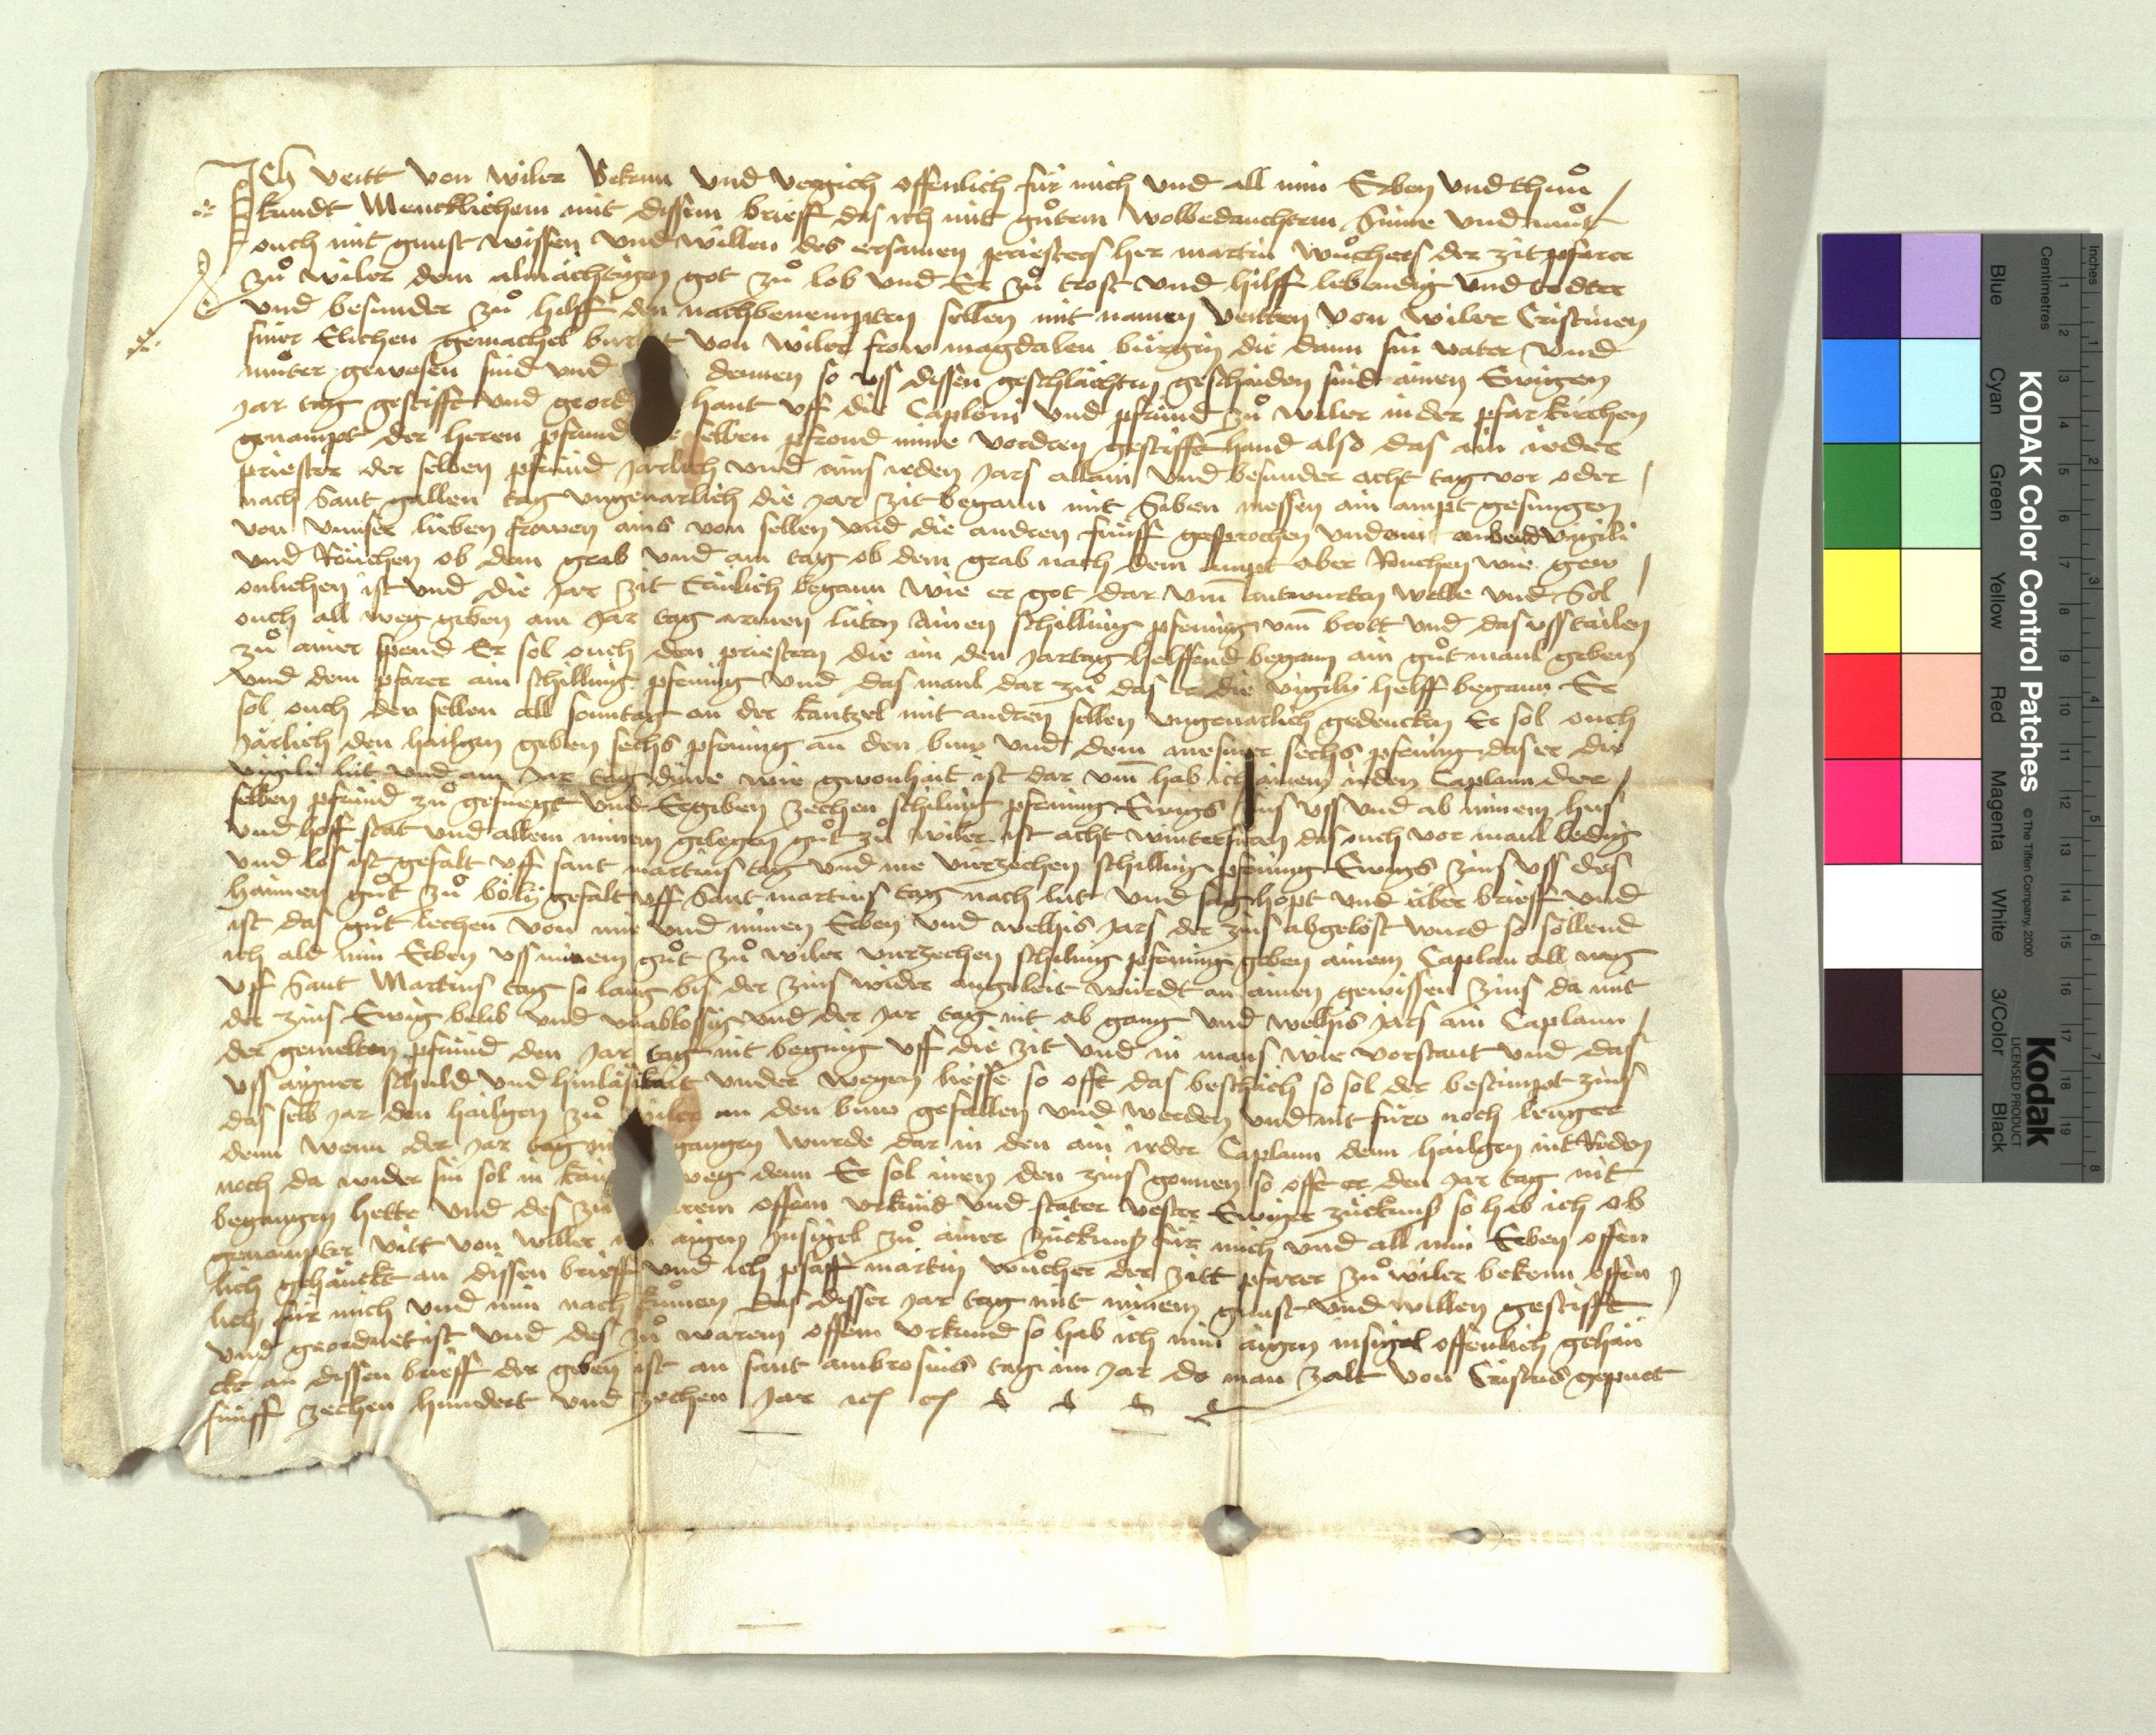 Ich veitt von wiler Bekenn vnd vergich offenlich für mich vnd all min Erben vnd thuͦn
kundt Mencklichem mit dissem brieff das ich mit guͦtem wolbedauchtem Sinne vnd muͦt
ouch mit gunst wissen vnd willen des ersamen priesters her martin wuͦchers der zit pfarer
zuͦ wiler dem almächtigen got zuͦ lob vnd Er zuͦ trost vnd hilff lebendig vnd todter
vnd besunder zuͦ helff den nachbenempten sellen mit namen veitten von wiler Cristinen
siner Elichen gemachel von wiler frow magdalen bürgin die dann sin vater vnd
muͦter gewesen sind vnd dennen so vss dissen geschlächten geschaiden sind ainen Ewigen
Jar tag gestifft vnd geord hant vff die Caplony vnd pfrund zuͦ wiler in der pfarkirchen
genampt der heren pfrund selben pfrond mine vordren gestifft hand also das ain ieder
priester der selben pfrund Jarlich vnd ains ieden Jars allain vnd besunder acht tag vor oder
nach Sant gallen tag vngeuarlich die Jar zit began mit Siben messen ain ampt gesungen
von vnnser lieben frowen ains von sellen vnd die andren fünff gesprochen vnd am aubend vigili
vnd Röuchen ob dem grab vnd am tag ob dem grab nach dem ampt aber Röuchen wie gew
onlichen ist vnd die Jar zit Erlich begann wie er got dar vm antwurten welle vnd Sol
ouch all weg geben am Jar tag armen lüten Ainen schilling pfening vm brott vnd das vsstailen
zuͦ ainer spend Er sol ouch den priestern die im den Jartag helffend began ain guͦt maul geben
vnd dem pfarer ain schilling pfening vnd das maul dar zuͦ das er die vigily helff began Er
sol ouch der sellen all sonntag an der kantzel mit andren sellen vngeuarlich gedencken Er sol ouch
Järlich den hailgen geben sechs pfening an den buw vnd dem mesmer sechs pfening das er die
vigili lüt vnd am Jar tag diene wie gwonhait ist dar vm hab ich ainem ieden Caplann der
selben pfrund zuͦ gefuegt vnd Ergeben zechen schiling pfening Ewigs zins vss vnd ab minem hus
vnd hoff stat vnd allem minem gelegen guͦt zuͦ wiler ist acht wintersuren das ouch vor maul ledig
vnd los ist gefalt vff sant martins tag vnd me vierzechen schilling pfening Ewigs zins vss des
hainen guͦt zuͦ böly gefalt vff Sant martins tag nach lut vnd sag hopt vnd über brieff vnd
ist das guͦt lechen von mir vnd minen Erben vnd welhis Jars der zins abgelöst wurd so söllend
ich ald min Erben vss minem guͦt zuͦ wiler vierzechen schiling pfening geben ainem Caplan all weg
vff Sant Martins tag so lang bis der zins wider angeleit wurdt an ainen gewissen zins da mit
der zins Ewig belib vnd vnablössig vnd der Jar tag nit ab gang vnd welhis Jars ain Caplann
der gemelten pfrund den Jar tag nit begieng vff die zit vnd in mans wie vorstaut vnd das
vss aigner schuld vnd hinläsikait vnder wegen liesse so offt das beschäch so sol der bestimpt zins
das selb Jar den hailgen zuͦ wiler an den buw gefallen vnd werden vnd nit füro noch lenger
denn wenn der Jar tag nit gangen wurde dar in den ain ieder Caplann denn hailgen nit Reden
noch da wider sin sol in kain weg denn Er sol inen den zins gonnen so offt er den Jar tag nit
begangen hette vnd des zuͦ offem vrkund vnd stäter vester Ewiger zückunß so hab ich ob
genampter vitt von willer min aigen Insigel zuͦ ainer zückunß für mich vnd all min Erben offen
lich gehänckt an dissen brieff vnd ich pfaff martin wuͦcher der zitt pfarer zuͦ wiler bekenn offen
lich für mich vnd min nach kuͦmen das disser Jar tag mit minem gunst vnd willen gestifft
vnd geordnet ist vnd des zuͦ warem offem vrkund so hab ich min aigen insigel offenlich gehän
ckt an dissen brieff der geben ist an sant ambrosius tag im Jar do man zalt von Cristus gepurt
fünff zechen hundert vnd zechen Jar
KODAK Color Control Patches
© The Tiffen Company, 2000
Kodak
LICENSED PRODUCT
Blue Cyan Green Yellow Red Magenta White 3/Color Black
Inches 1 2 3 4 5 6 7 8
Centimetres 1 2 3 4 5 6 7 8 9 10 11 12 13 14 15 16 17 18 19